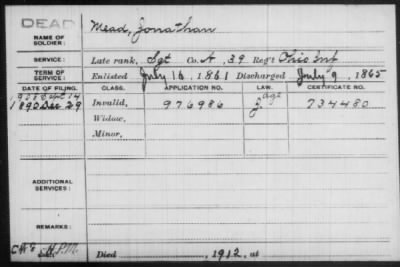 DEAD
NAME OF SOLDIER: Mead, Jonathan
SERVICE: Late rank, Sgt Co. A, 39 Reg't Ohio Inf
TERM OF SERVICE: Enlisted July 16, 1861 Discharged July 9, 1865
DATE OF FILING. CLASS. APPLICATION NO. LAW. CERTIFICATE NO.
14
1890 29 Invalid, 976986 age 734480
Widow,
Minor,
ADDITIONAL SERVICES:
REMARKS:
Died , 1912, at